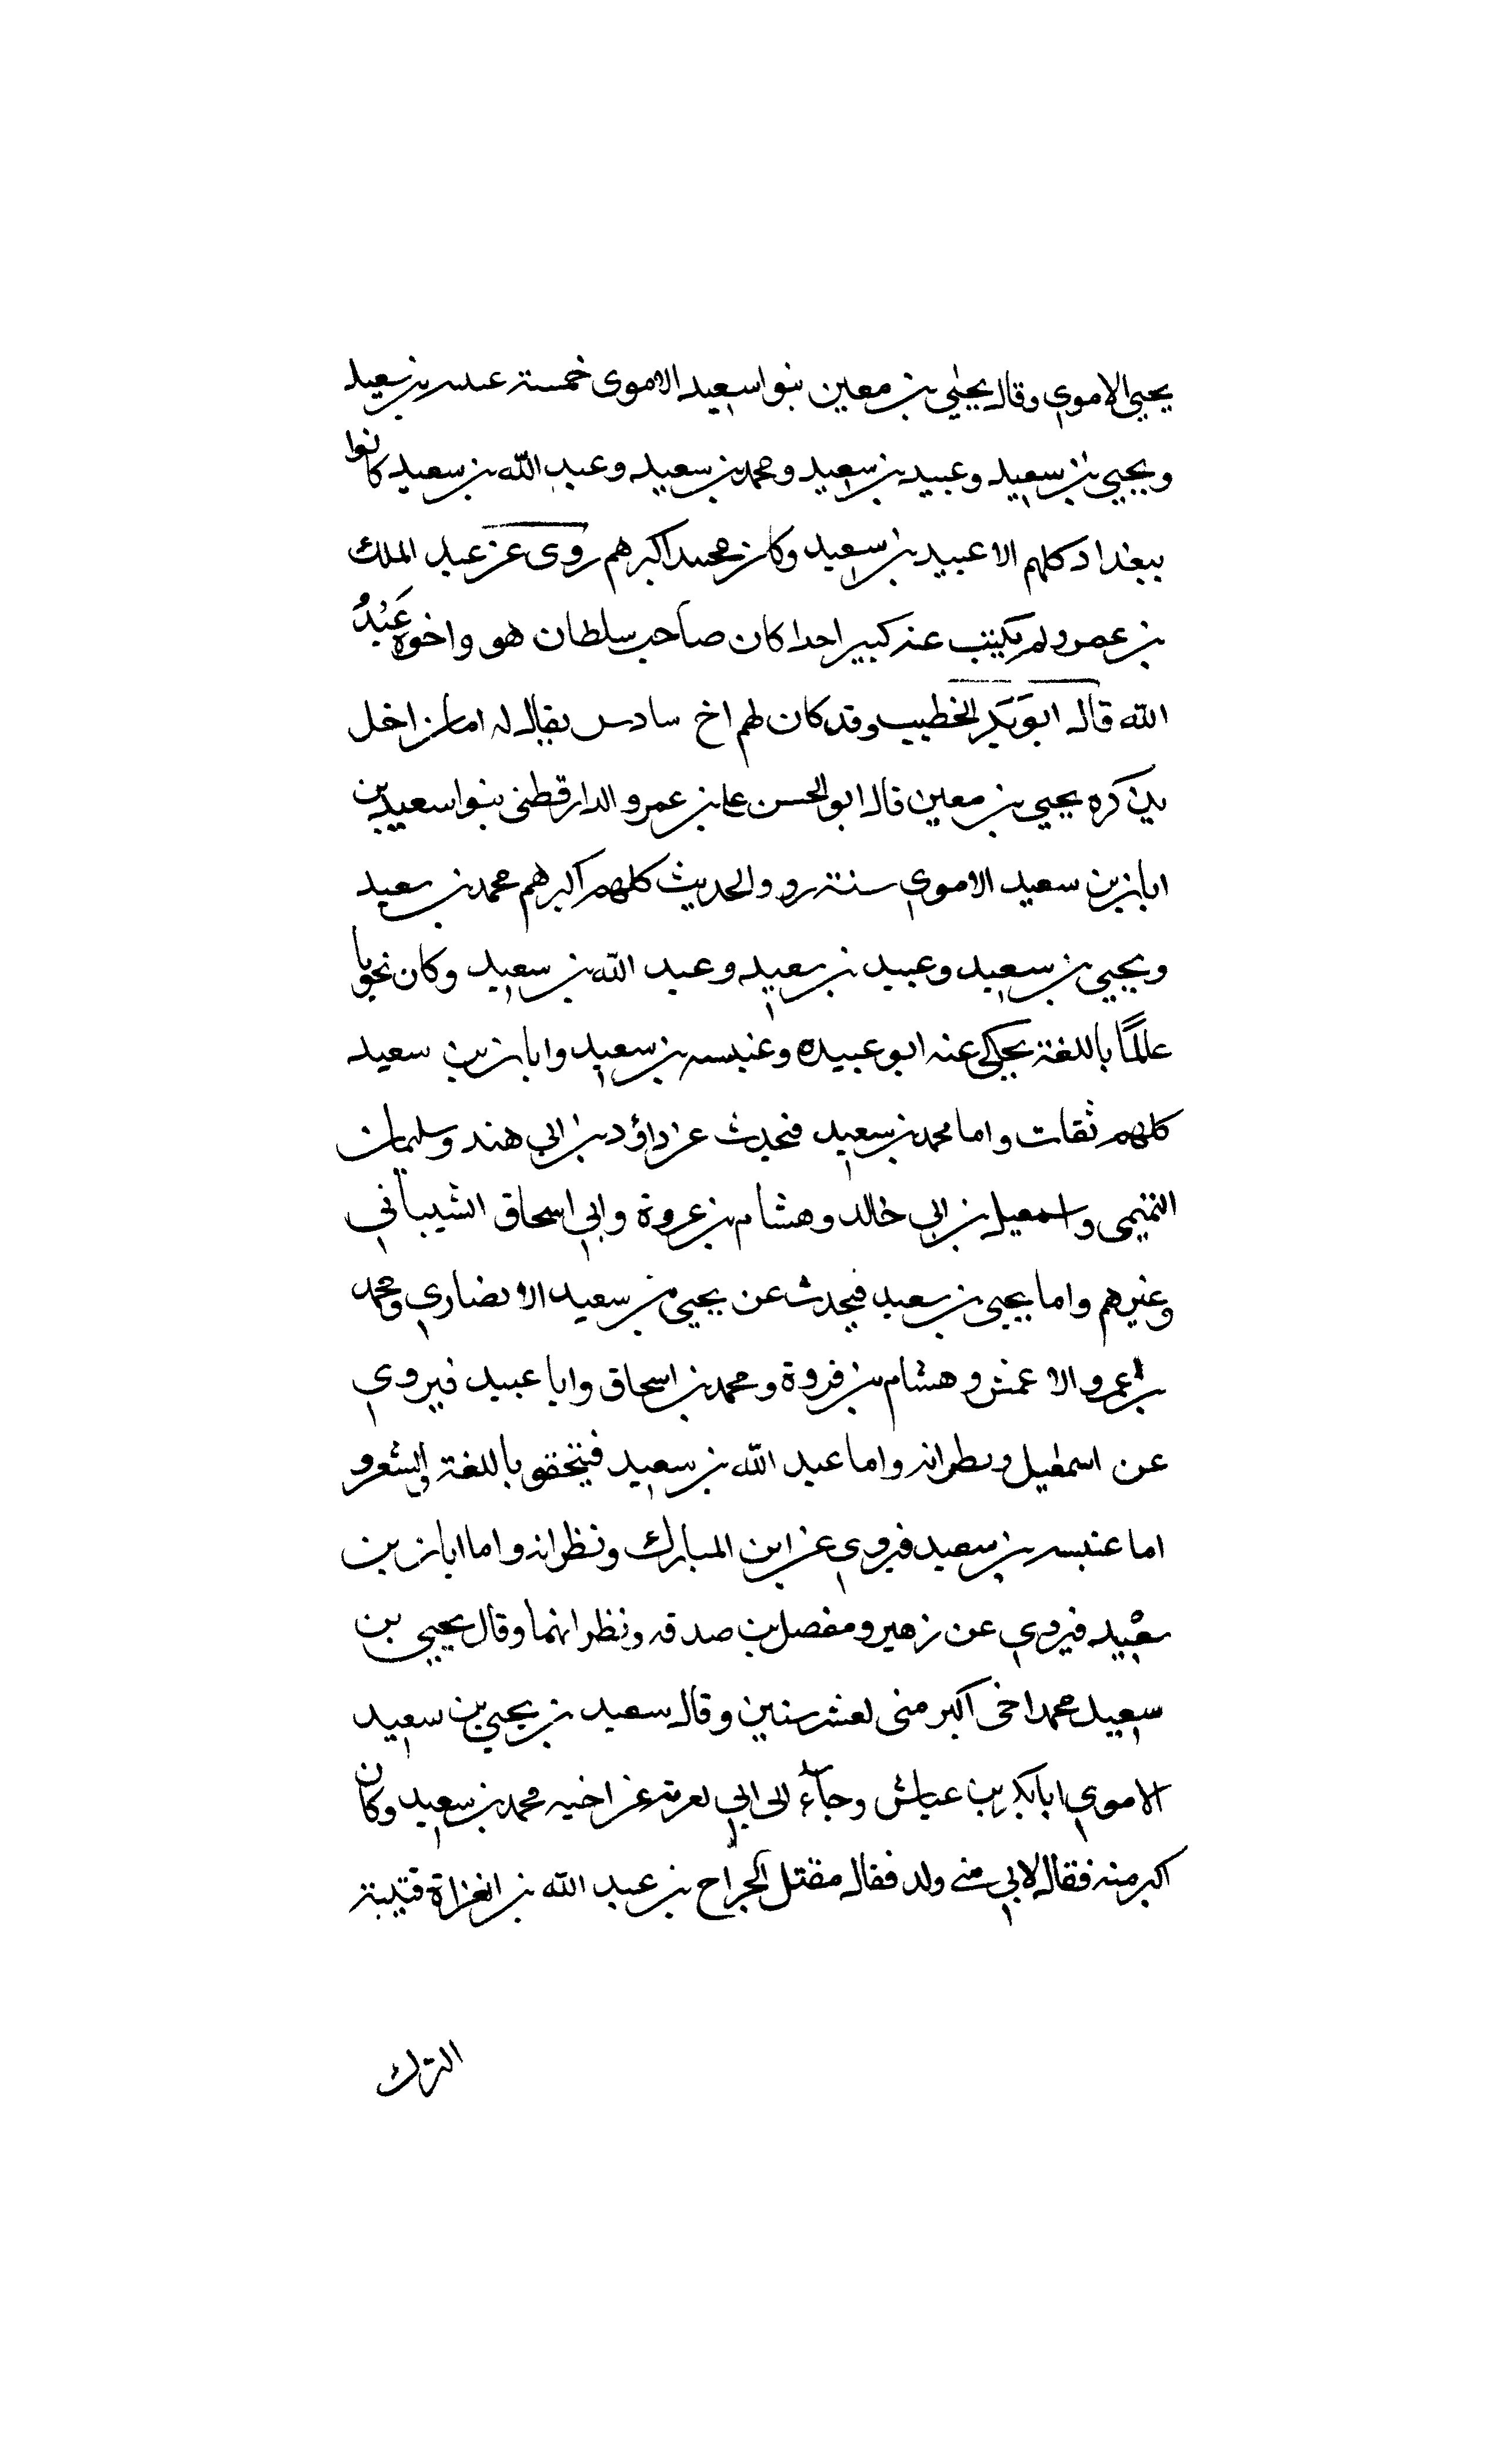 يحيى الاموي وقال يحيى بن معين بنوا سعيد الاموى خمسة عنبسه بن سعيد
ويحيى بن سعيد وعبيد بن سعيد ومحمد بن سعيد وعبد الله بن سعيد كانوا
ببغداد كلهم الا عبيد بن سعيد وكان محمد اكبرهم روى عن عبد الملك
بن عمرو لم يكتب عنه كبير احدا كان صاحب سلطان هو واخوه عَبْدُ
الله قال ابو بكر الخطيب وقد كان لهم اخ سادس يقال له ابان اخل
بذكره يحيى بن معين قال ابو الحسن على بن عمرو الدارقطنى بنوا سعيد بن
ابان بن سعيد الاموي ستة رووا الحديث كلهم اكبرهم محمد بن سعيد
ويحيى بن سعيد وعبيد بن سعيد وعبد الله بن سعيد وكان نحويا
عالمًا باللغة يحكى عنه ابو عبيده وعنبسه بن سعيد وابان بن سعيد
كلهم ثقات واما محمد بن سعيد فحدث عن داؤد بن ابي هند وسليمان
التميمى واسمعيل بن ابي خالد وهشام بن عروة وابي اسحاق الشيباني
وغيرهم واما يحيى بن سعيد فيحدث عن يحيى بن سعيد الانصاري ومحمد
بن عمرو والاعمش وهشام بن فروة ومحمد بن اسحاق وابا عبيد فيروي
عن اسمعيل ونظرانه واما عبد الله بن سعيد فيتحقق باللغة والشعر و
اما عنبسه بن سعيد فيروي عن ابن المبارك ونظرانه واما ابان بن
سعيد فيروي عن زهير ومفصل بن صدقه ونظرانهما وقال يحيى بن
سعيد محمد اخى اكبر منى بعشر سنين وقال سعيد بن يحيى بن سعيد
الاموي ابا بكر بن عياش وجآء الى ابي يعزيه عن اخيه محمد بن سعيد وكان
اكبر منه فقال لابي متى ولد فقال مقتل الجراح بن عبد الله بن انغزاة قتيبة
الترك